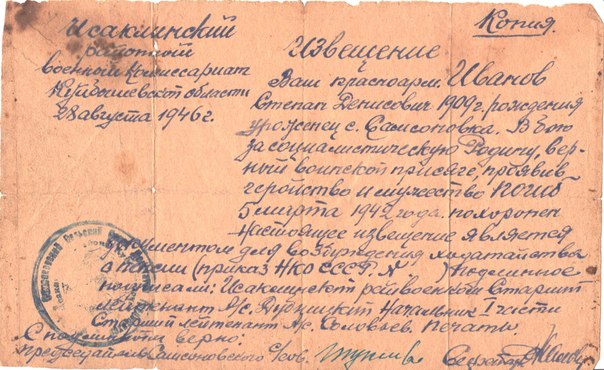 Копия.
Исаклинский
районный
военный Комиссариат
Куйбышевской области
28 августа 1946 г.
Извещение
Ваш красноарм. Иванов
Степан Денисович 1909 г. рождения
уроженец с. Самсоновка. В бою
за социалистическую Родину, вер-
ный воинской присяге, проявив
геройство и мужество погиб
5 марта 1942 года. похоронен
Настоящее извещение является
документом для возбуждения ходатайства
о пенсии (приказ НКО СССР №      ) Подлинное
подписали: Исаклинский райвоенком Старший
лейтенант А/с. Начальник I части
Старший лейтенант А/с. Соловьев. Печать.
С подлинным верно:
Председатель Самсоновского с/сов. Секретарь